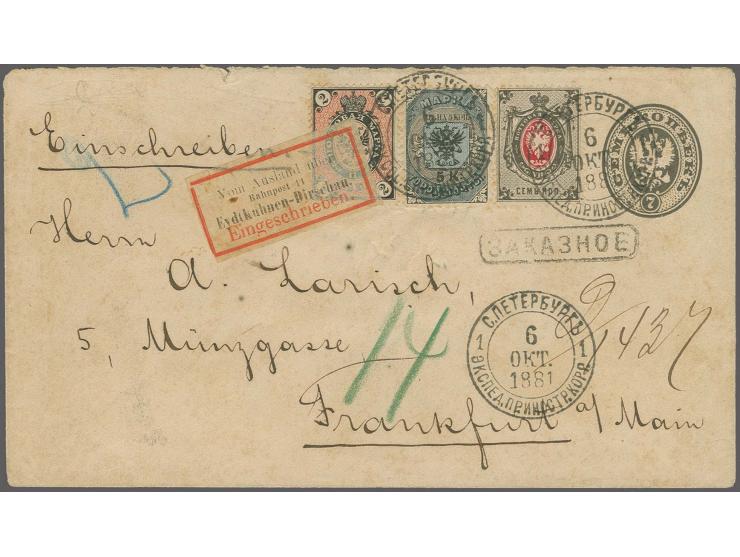 Einschreiben
2
2
МАРКА
5 К.
СЕМЬ КОП.
С.ПЕТЕРБУРГЪ
6
ОКТ.
1881
СЕМЬ КОПѢЕКЪ
7
Vom Ausland über
Bahnpost 11
Eydtkuhnen-Dirschau
Eingeschrieben.
ЗАКАЗНОЕ
Herrn
A. Larisch,
5, Münzgasse
14
1437
С.ПЕТЕРБУРГЪ
1 6 1
ОКТ.
1881
ЭКСПЕД.ПРИ ИНОСТР.КОРР.
Frankfurt a/Main